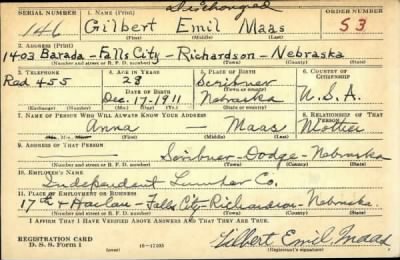 Discharged
SERIAL NUMBER 1. NAME (Print) ORDER NUMBER
146 Gilbert Emil Maas 53
(First) (Middle) (Last)
2. ADDRESS (Print)
1403 Barada - Falls City - Richardson - Nebraska
(Number and street or R. F. D. number) (Town) (County) (State)
3. TELEPHONE 4. AGE IN YEARS 5. PLACE OF BIRTH 6. COUNTRY OF CITIZENSHIP
Red 455 28 Scribner
DATE OF BIRTH (Town or county)
Dec. 17-1911 Nebraska U.S.A.
(Exchange) (Number) (Mo.) (Day) (Yr.) (State or country)
7. NAME OF PERSON WHO WILL ALWAYS KNOW YOUR ADDRESS 8. RELATIONSHIP OF THAT PERSON
Anna — Maas Mother
(Mr., Mrs., Miss) (First) (Middle) (Last)
9. ADDRESS OF THAT PERSON
— Scribner-Dodge-Nebraska
(Number and street or R. F. D. number) (Town) (County) (State)
10. EMPLOYER'S NAME
Independent Lumber Co.
11. PLACE OF EMPLOYMENT OR BUSINESS
17th & Harlan - Falls City-Richardson-Nebraska.
(Number and street or R. F. D. number) (Town) (County) (State)
I AFFIRM THAT I HAVE VERIFIED ABOVE ANSWERS AND THAT THEY ARE TRUE.
REGISTRATION CARD
D. S. S. Form 1 16-17105 Gilbert Emil Maas